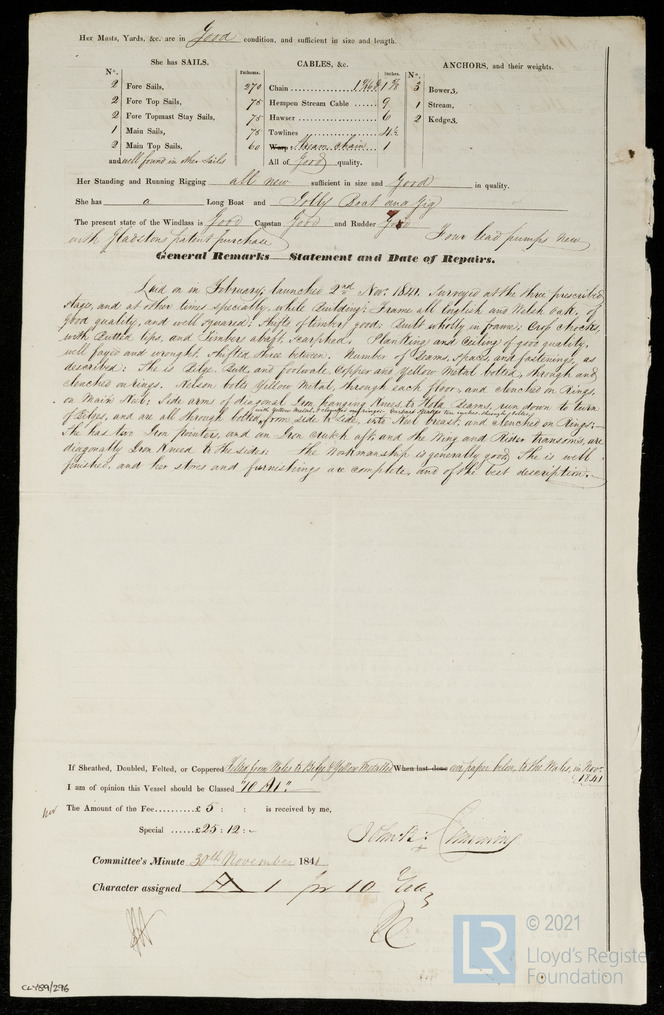 Her Masts, Yards, &c. are in Good condition, and sufficient in size and length.
She has SAILS. CABLES, &c. ANCHORS, and their weights.
No. Fathoms. Inches. No.
2 Fore Sails, 270 Chain 1 3 Bowers,
2 Fore Top Sails, 75 Hempen Stream Cable 9 1 Stream,
2 Fore Topmast Stay Sails, 75 Hawser 6 2 Kedges,
1 Main Sails, 75 Towlines 4½
2 Main Top Sails, 60 Warp Stream chain 1
and well found in other Sails All of Good quality.
Her Standing and Running Rigging all new sufficient in size and Good in quality.
She has a Long Boat and Jolly Boat and Gig
The present state of the Windlass is Good Capstan Good and Rudder Good Four lead pumps new
with Gladstons patent purchase
General Remarks Statement and Date of Repairs.
Laid on in February, launched 2nd Novr. 1841. Surveyed at the three prescribed
stages, and at other times specially, while Building: Frame all English and Welch Oak, of
good quality, and well squared: Shifts of timber good: Butts wholly in frame: Crop chocks,
with Butted lips, and Timbers abaft, scarphed. Plankting and Ceiling of good quality,
well fayed and wrought. Shifted three between. Number of Beams, spaces, and fastenings, as
described: She is Bilge, Butt, and footwale Copper and Yellow Metal bolted, through and
clenched on rings. Kelson bolts Yellow Metal, through each floor, and clenched on Rings,
on Main Keel: Side arms of diagonal Iron hanging Knees to Hold Beams, run down to turn
of Bilges, and are all through bolted,
with Yellow Metal, & clenched on rings.
from side to side, into Keel breast, and clenched on Rings.
She has two Iron pointers, and an Iron crutch aft and the Wing and Rider transoms, are
diagonally Iron Kneed to the sides: the workmanship is generally good, She is well
finished, and her stores and furnishings are complete, and of the best description.
If Sheathed, Doubled, Felted, or Coppered Felted from Wales to Bilge & Yellow Metalled When last done on paper below, to the Wales, in Novr.
1841
I am of opinion this Vessel should be Classed "10 A1"
The Amount of the Fee £5 : : is received by me,
Special £25:12:-
Committee's Minute 30th November 1841
Character assigned A 1 for 10 Yrs
CLY89/296
LR
© 2021
Lloyd's Register
Foundation